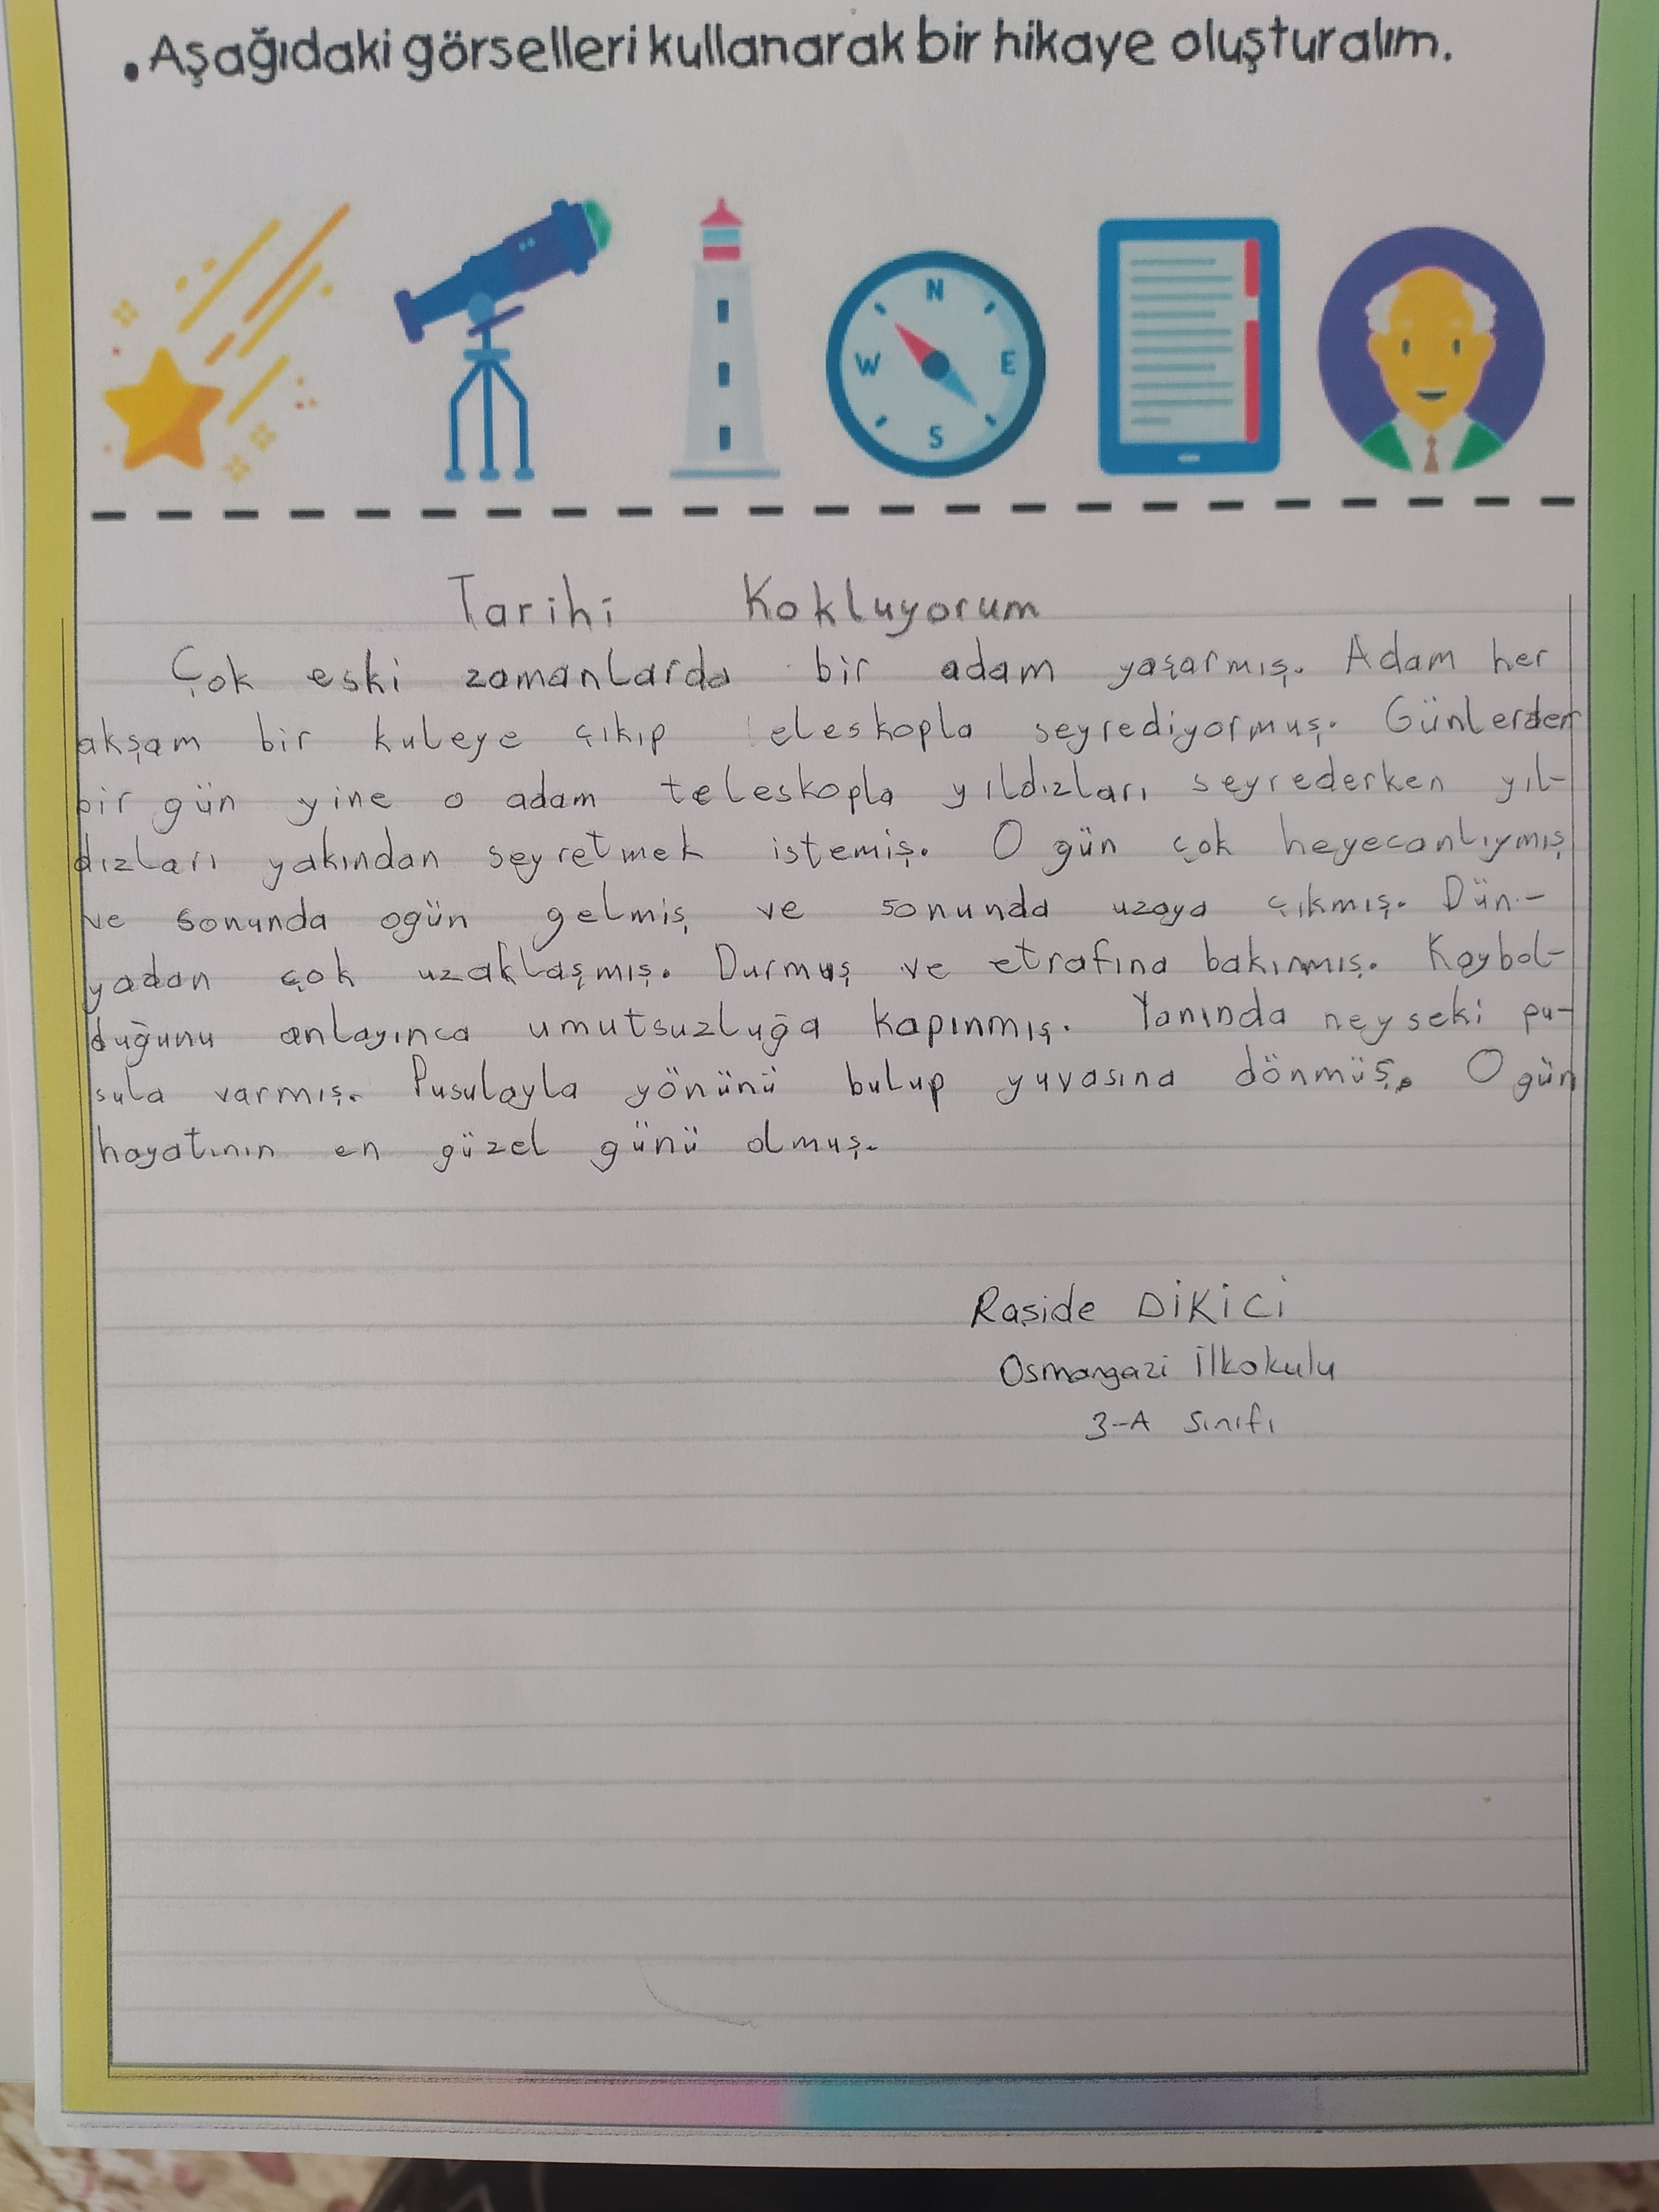 . Aşağıdaki görselleri kullanarak bir hikaye oluşturalım.
N
W E
S
Tarihi Kokluyorum
Çok eski zamanlarda bir adam yaşarmış. Adam her
akşam bir kuleye çıkıp eleskopla seyrediyormuş. Günlerden
bir gün yine o adam teleskopla yıldızları seyrederken yıl-
dızları yakından seyretmek istemiş. O gün çok heyecanlıymış
ve sonunda ogün gelmiş ve sonunda uzaya çıkmış. Dün-
yadan çok uzaklaşmış. Durmuş ve etrafına bakınmış. Kaybol-
duğunu anlayınca umutsuzluğa kapınmış. Yanında neyseki pu-
sula varmış. Pusulayla yönünü bulup yuvasına dönmüş. O gün
hayatının en güzel günü olmuş.
Raşide DİKİCİ
Osmangazi İlkokulu
3-A Sınıfı